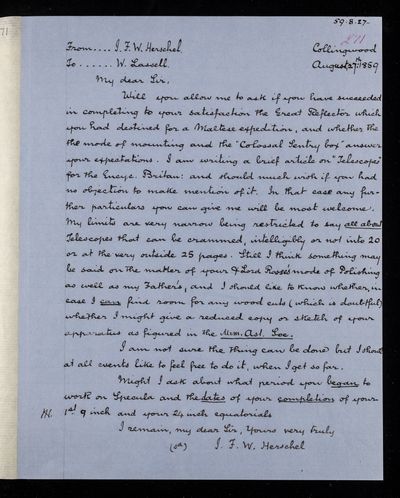 59.8.27.
271
From.... J. F. W. Herschel
Collingwood
To...... W. Lassell.
August 27th. 1859
My dear Sir,
Will you allow me to ask if you have succeeded
in completing to your satisfaction the Great Reflector which
you had destined for a Maltese expedition, and whether the
the mode of mounting and the "Colossal Sentry box" answer
your expectations. I am writing a brief article on "Telescopes"
for the Encyc. Britan: and should much wish if you had
no objection to make mention of it. In that case any fur-
ther particulars you can give me will be most welcome.
My limits are very narrow being restricted to say all about
Telescopes that can be crammed, intelligibly or not into 20
or at the very outside 25 pages. Still I think something may
be said on the matter of your & Lord Rosse's mode of Polishing
as well as my Father's, and I should like to know whether, in
case I can find room for any wood cuts (which is doubtful)
whether I might give a reduced copy or sketch of your
apparatus as figured in the Mem. Ast. Soc.
I am not sure the thing can be done but I should
at all events like to feel free to do it, when I get so far.
Might I ask about what period you began to
work on Specula and the dates of your completion of your
1st 9 inch and your 24 inch equatorials
I remain, my dear Sir, Yours very truly
(sd) J. F. W. Herschel